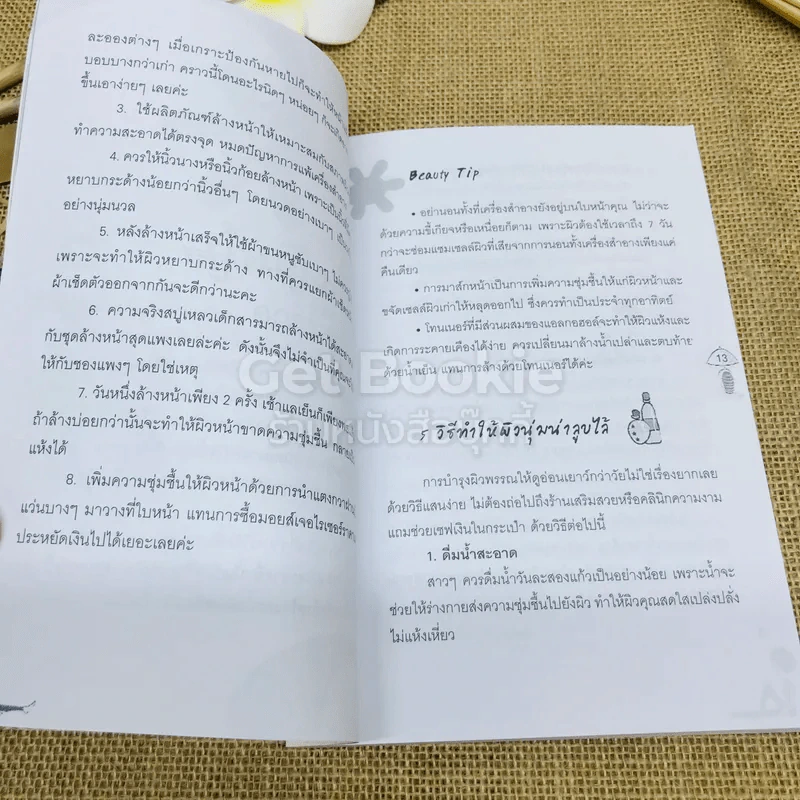 ละอองต่างๆ เมื่อเกราะป้องกันหายไปก็จะทำให้
บอบบางกว่าเก่า คราวนี้โดนอะไรนิดๆ หน่อยๆ ก็จะ
ขึ้นเอาง่ายๆ เลยค่ะ
3. ใช้ผลิตภัณฑ์ล้างหน้าให้เหมาะสมกับ
ทำความสะอาดได้ตรงจุด หมดปัญหาการแพ้เครื่องสำอาง
4. ควรให้นิ้วนางหรือนิ้วก้อยล้างหน้า เพราะเป็น
หยาบกระด้างน้อยกว่านิ้วอื่นๆ โดยนวดอย่างเบาๆ
อย่างนุ่มนวล
5. หลังล้างหน้าเสร็จให้ใช้ผ้าขนหนูซับเบาๆ
เพราะจะทำให้ผิวหยาบกระด้าง ทางที่ควรแยกผ้าเช็ด
ผ้าเช็ดตัวออกจากกันจะดีกว่านะคะ
6. ความจริงสบู่เหลวเด็กสามารถล้างหน้าได้
กับชุดล้างหน้าสุดแพงเลยล่ะค่ะ ดังนั้นจึงไม่จำเป็นที่
ให้กับของแพงๆ โดยใช่เหตุ
7. วันหนึ่งล้างหน้าเพียง 2 ครั้ง เช้าแลเย็นก็เพียง
ถ้าล้างบ่อยกว่านั้นจะทำให้ผิวหน้าขาดความชุ่มชื้น
แห้งได้
8. เพิ่มความชุ่มชื้นให้ผิวหน้าด้วยการนำแตงกวา
แว่นบางๆ มาวางที่ใบหน้า แทนการซื้อมอยส์เจอไรเซอร์
ประหยัดเงินไปได้เยอะเลยค่ะ
Beauty Tip
• อย่านอนทั้งที่เครื่องสำอางยังอยู่บนใบหน้าคุณ ไม่ว่าจะ
ด้วยความขี้เกียจหรือเหนื่อยก็ตาม เพราะผิวต้องใช้เวลาถึง 7 วัน
กว่าจะซ่อมแซมเซลล์ผิวที่เสียจากการนอนทั้งเครื่องสำอางเพียงแค่
คืนเดียว
• การมาส์กหน้าเป็นการเพิ่มความชุ่มชื้นให้แก่ผิวหน้าและ
ขจัดเซลล์ผิวเก่าให้หลุดออกไป ซึ่งควรทำเป็นประจำทุกอาทิตย์
• โทนเนอร์ที่มีส่วนผสมของแอลกอฮอล์จะทำให้ผิวแห้งและ
เกิดการระคายเคืองได้ง่าย ควรเปลี่ยนมาล้างน้ำเปล่าและตบท้าย
ด้วยน้ำเย็น แทนการล้างด้วยโทนเนอร์ได้ค่ะ
13
Get Bookie
ร้านหนังสือตุ๊กตี้
5 วิธีทำให้ผิวนุ่มน่าลูบไล้
การบำรุงผิวพรรณให้ดูอ่อนเยาว์กว่าวัยไม่ใช่เรื่องยากเลย
ด้วยวิธีแสนง่าย ไม่ต้องถ่อไปถึงร้านเสริมสวยหรือคลินิกความงาม
แถมช่วยเซฟเงินในกระเป๋า ด้วยวิธีต่อไปนี้
1. ดื่มน้ำสะอาด
สาวๆ ควรดื่มน้ำวันละสองแก้วเป็นอย่างน้อย เพราะน้ำจะ
ช่วยให้ร่างกายส่งความชุ่มชื้นไปยังผิว ทำให้ผิวคุณสดใสเปล่งปลั่ง
ไม่แห้งเหี่ยว